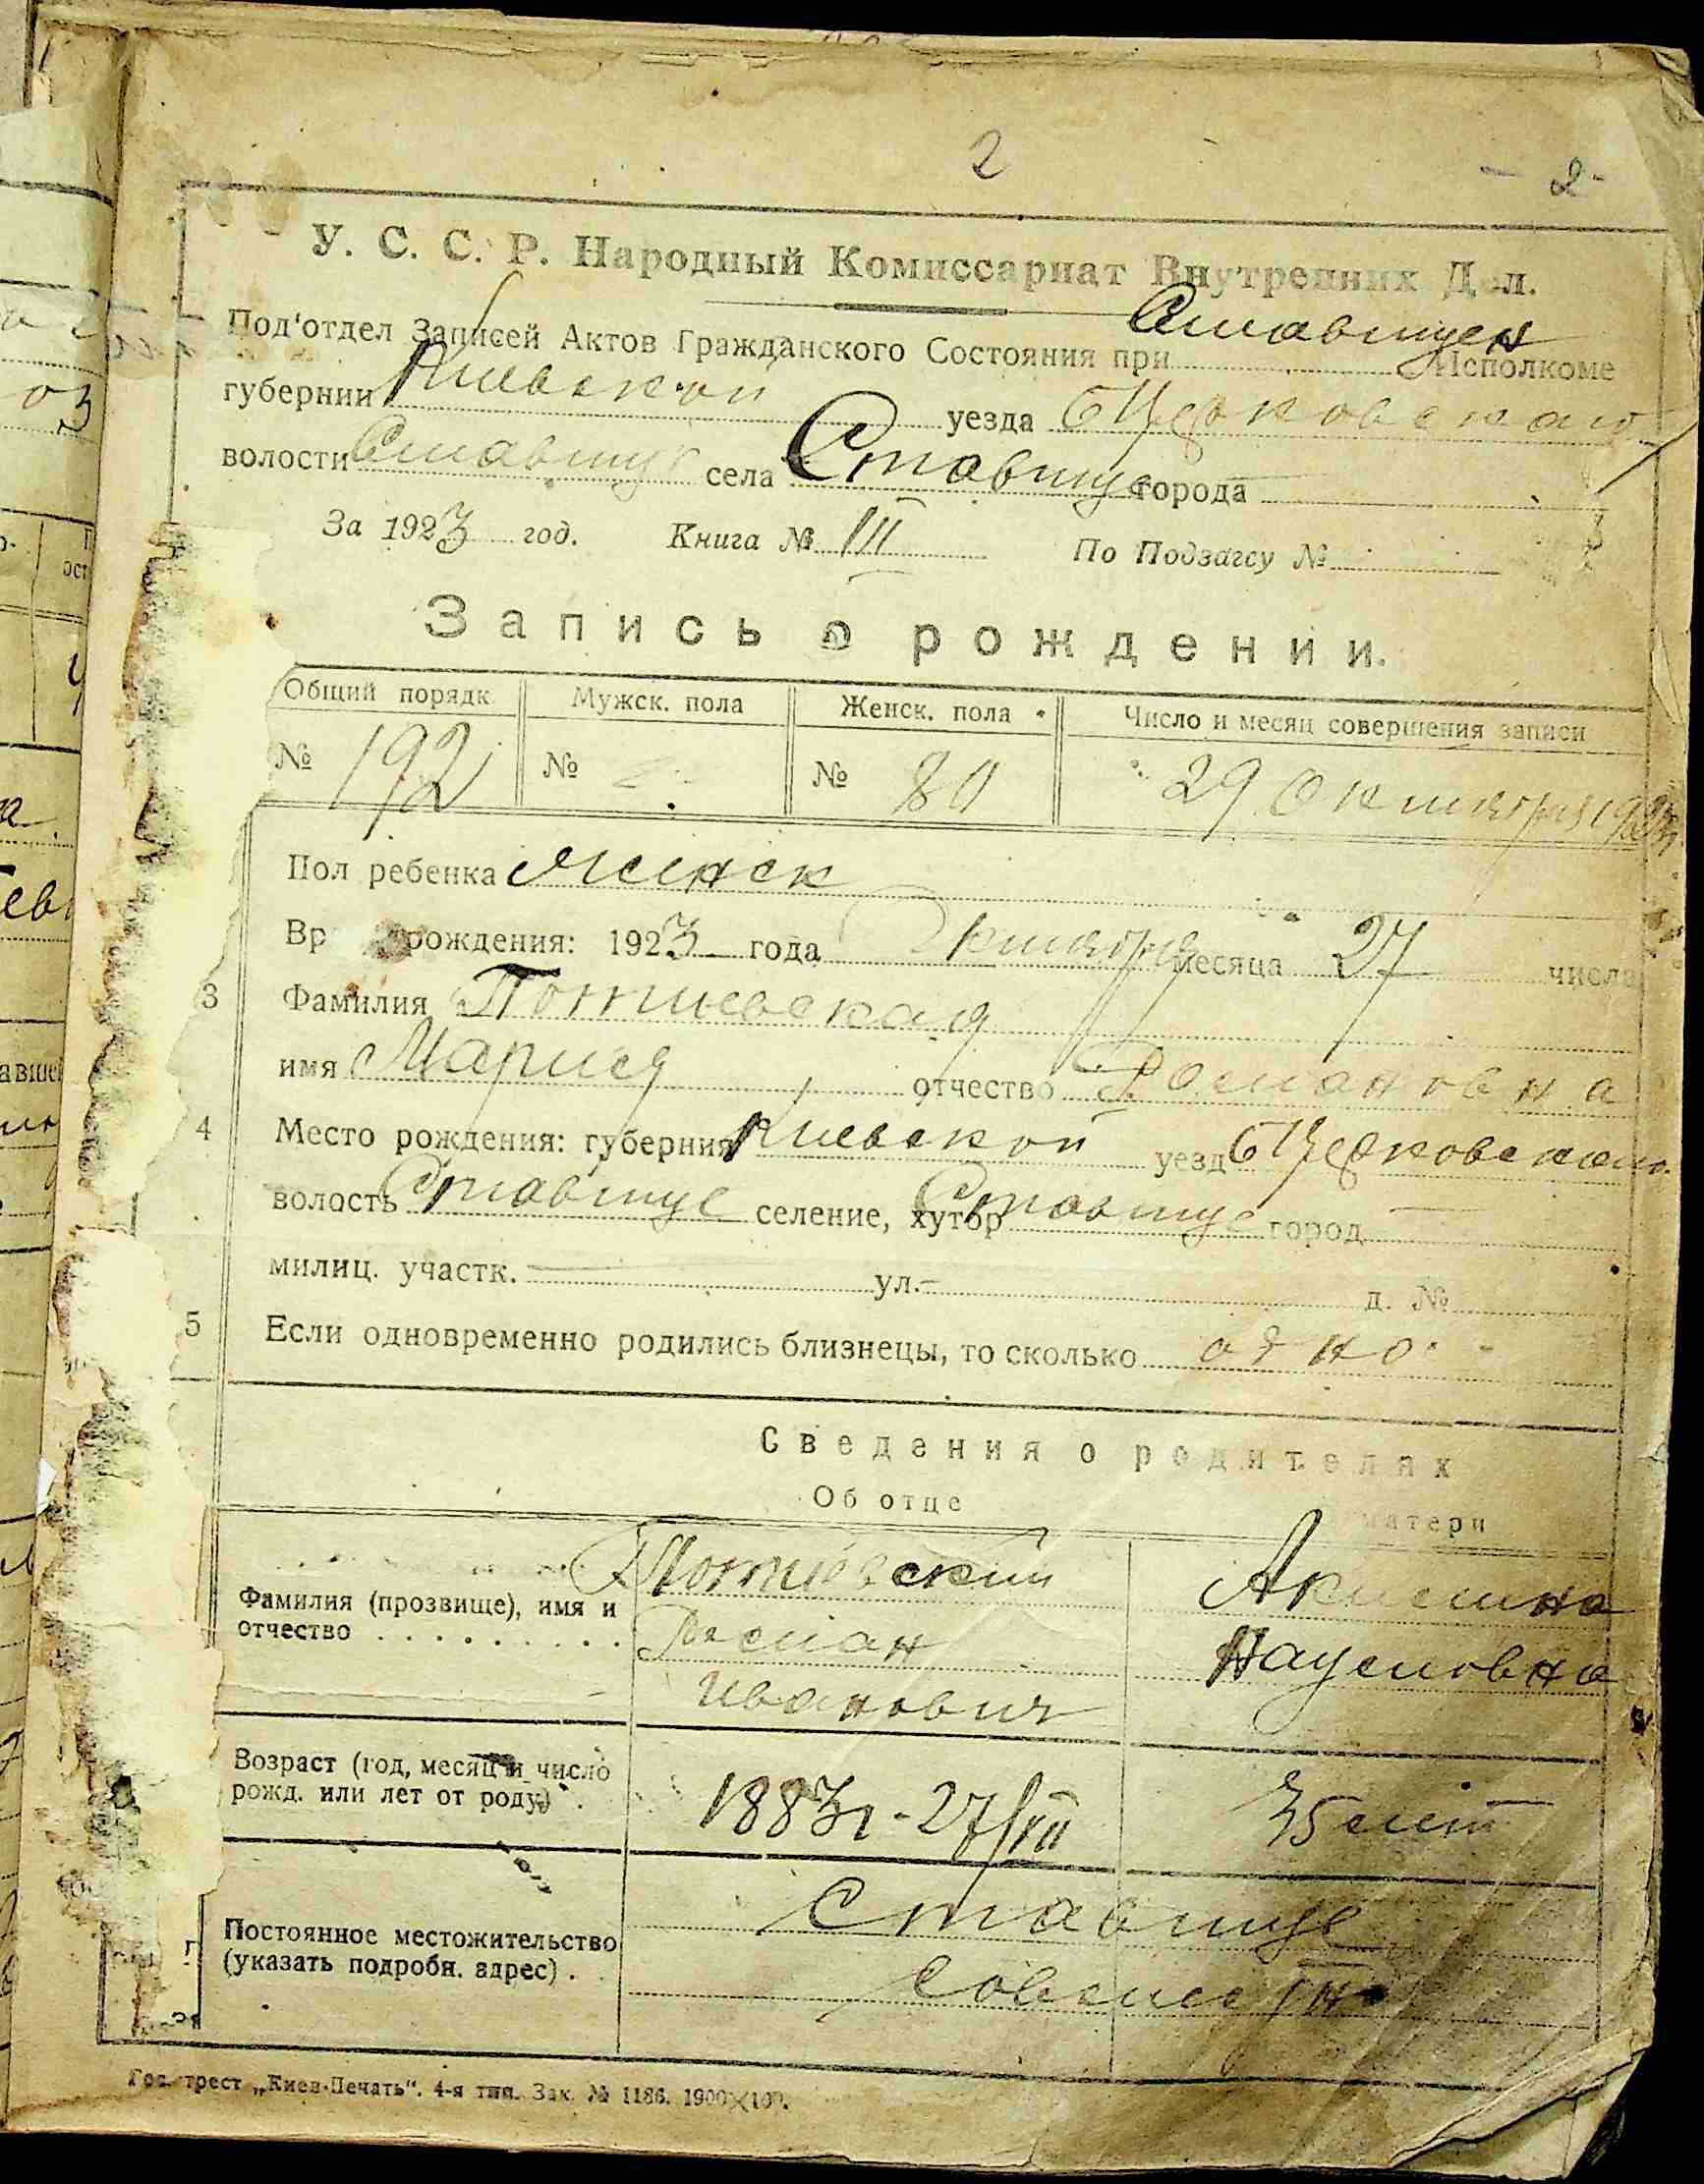 2
- 2 -
У. С. С. Р. Народный Комиссариат Внутренних Дел.
Под'отдел Записей Актов Гражданского Состояния при Ставищен Исполкоме
губернии Киевской уезда Б Церковского
волости Ставище села Ставище города
За 1923 год. Книга № III По Подзагсу №
Запись о рождении.
Общий порядк. Мужск. пола Женск. пола Число и месяц совершения записи
№ 192 № № 80 29 Октября 1923
Пол ребенка женск
Вр рождения: 1923 года Октября месяца 27 числа
3 Фамилия Потиевская
имя Мария отчество Романовна
4 Место рождения: губерния Киевской уезд Б Церковского
волость Ставище селение, хутор Ставище город
милиц. участк. ул. д. №
5 Если одновременно родились близнецы, то сколько одно
Сведения о родителях
Об отце матери
Фамилия (прозвище), имя и отчество Потиевский Роман Иванович Акилина Наумовна
Возраст (год, месяц и число рожд. или лет от роду) 1883г - 27/VII 35 лет
Постоянное местожительство (указать подробн. адрес) Ставище
Гос. трест „Киев-Печать“. 4-я тип. Зак. № 1186. 1900×100.